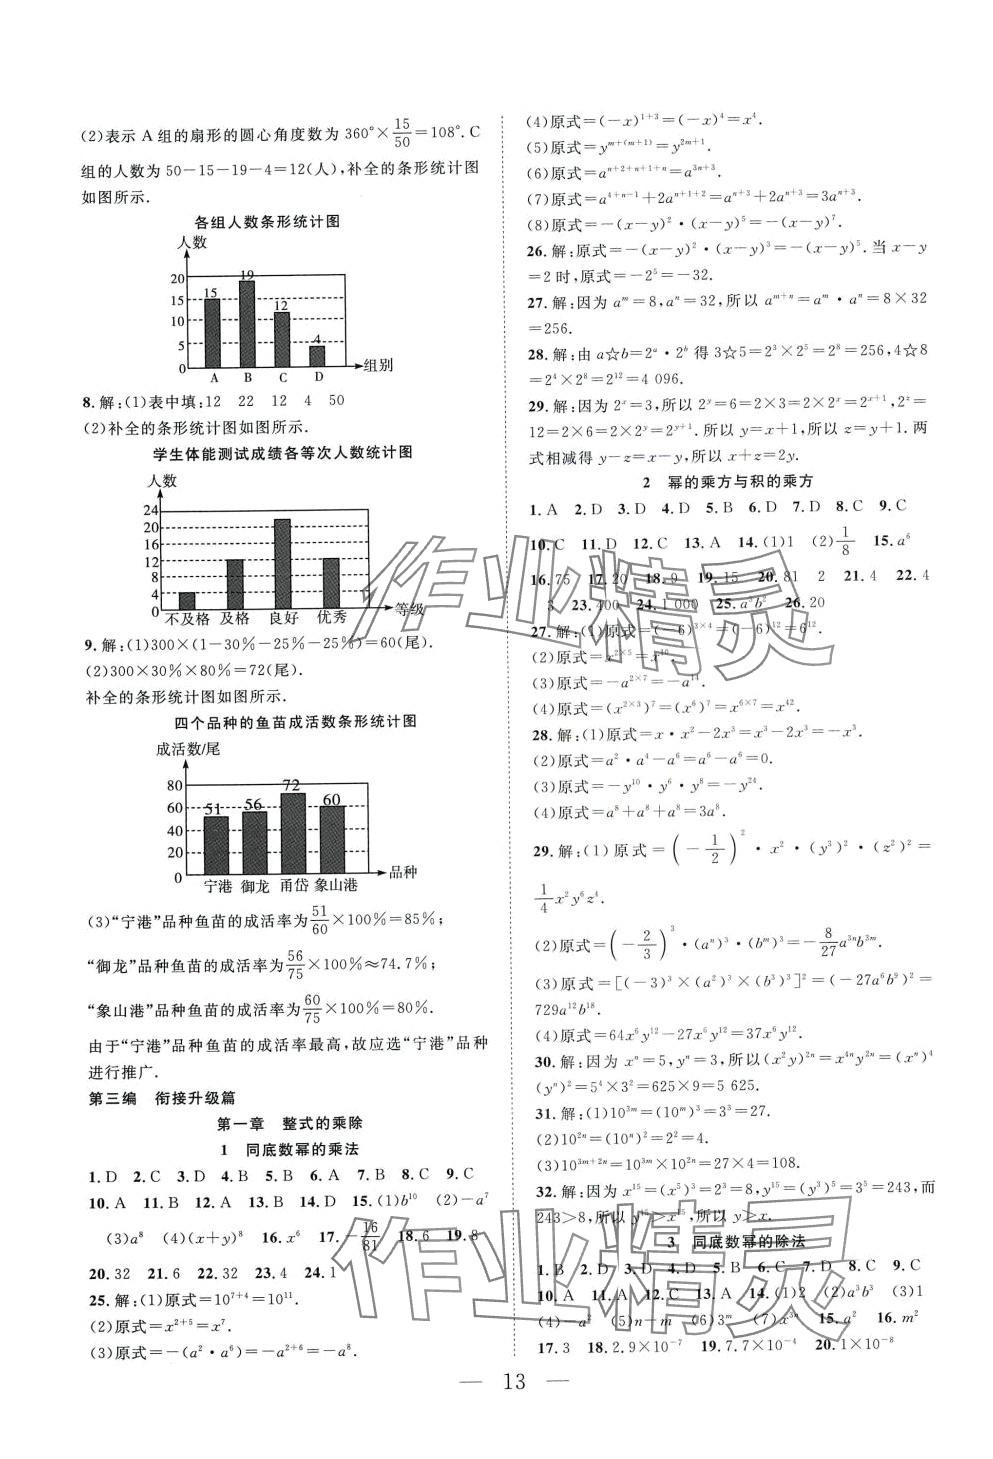 (2)表示 A 组的扇形的圆心角度数为 360°×15/50=108°. C
组的人数为 50-15-19-4=12(人),补全的条形统计图
如图所示.
各组人数条形统计图
人数
20
15
10
5
0
15
19
12
4
A B C D
组别
8.解:(1)表中填:12 22 12 4 50
(2)补全的条形统计图如图所示.
学生体能测试成绩各等次人数统计图
人数
24
20
16
12
8
4
0
不及格 及格 良好 优秀 等级
9.解:(1)300×(1-30%-25%-25%)=60(尾).
(2)300×30%×80%=72(尾).
补全的条形统计图如图所示.
四个品种的鱼苗成活数条形统计图
成活数/尾
80
60
40
20
0
51 56 72 60
宁港 御龙 甬岱 象山港 品种
(3)“宁港”品种鱼苗的成活率为51/60×100%=85%;
“御龙”品种鱼苗的成活率为56/75×100%≈74.7%;
“象山港”品种鱼苗的成活率为60/75×100%=80%.
由于“宁港”品种鱼苗的成活率最高,故应选“宁港”品种
进行推广.
第三编 衔接升级篇
第一章 整式的乘除
1 同底数幂的乘法
1. D 2. C 3. D 4. B 5. B 6. A 7. B 8. C 9. C
10. A 11. B 12. A 13. D 14. D 15. (1)b¹⁰ (2)-a⁷
(3)a⁸ (4)(x+y)⁸ 16. x⁶ 17. -16/81 18. 6 19. 8
20. 32 21. 6 22. 32 23. 4 24. 1
25.解:(1)原式=10⁷⁺⁴=10¹¹.
(2)原式=x²⁺⁵=x⁷.
(3)原式=-(a²·a⁶)=-a²⁺⁶=-a⁸.
(4)原式=(-x)¹⁺³=(-x)⁴=x⁴.
(5)原式=y^{m+(m+1)}=y^{2m+1}.
(6)原式=a^{n+2+n+1+n}=a^{3n+3}.
(7)原式=a^{4+n-1}+2a^{n+1+2}=a^{n+3}+2a^{n+3}=3a^{n+3}.
(8)原式=-(x-y)²·(x-y)⁵=-(x-y)⁷.
26.解:原式=-(x-y)²·(x-y)³=-(x-y)⁵.当 x-y
=2 时,原式=-2⁵=-32.
27.解:因为 a^m=8,a^n=32,所以 a^{m+n}=a^m·a^n=8×32
=256.
28.解:由 a☆b=2^a·2^b 得 3☆5=2³×2⁵=2⁸=256,4☆8
=2⁴×2⁸=2¹²=4 096.
29.解:因为 2^x=3,所以 2^y=6=2×3=2×2^x=2^{x+1},2^z=
12=2×6=2×2^y=2^{y+1}.所以 y=x+1,所以 z=y+1.两
式相减得 y-z=x-y,所以 x+z=2y.
2 幂的乘方与积的乘方
1. A 2. D 3. D 4. D 5. B 6. D 7. D 8. C 9. C
10. C 11. D 12. C 13. A 14. (1)1 (2)1/8 15. a⁶
16. 75 17. 20 18. 9 19. 15 20. 81 2 21. 4 22. 4
3 23. 400 24. 1 000 25. a²b² 26. 20
27.解:(1)原式=(-6)^{3×4}=(-6)¹²=6¹².
(2)原式=x^{2×5}=x¹⁰.
(3)原式=-a^{2×7}=-a¹⁴.
(4)原式=(x^{2×3})⁷=(x⁶)⁷=x^{6×7}=x⁴².
28.解:(1)原式=x·x²-2x³=x³-2x³=-x³.
(2)原式=a²·a⁴-a⁶=a⁶-a⁶=0.
(3)原式=-y¹⁰·y⁶·y⁸=-y²⁴.
(4)原式=a⁸+a⁸+a⁸=3a⁸.
29.解:(1)原式=(-1/2)²·x²·(y³)²·(z²)²=
1/4x²y⁶z⁴.
(2)原式=(-2/3)³·(a^n)³·(b^m)³=-8/27a^{3n}b^{3m}.
(3)原式=[(-3)³×(a²)³×(b³)³]²=(-27a⁶b⁹)²=
729a¹²b¹⁸.
(4)原式=64x⁶y¹²-27x⁶y¹²=37x⁶y¹².
30.解:因为 x^n=5,y^n=3,所以(x²y)^{2n}=x^{4n}y^{2n}=(x^n)⁴
(y^n)²=5⁴×3²=625×9=5 625.
31.解:(1)10^{3m}=(10^m)³=3³=27.
(2)10^{2n}=(10^n)²=2²=4.
(3)10^{3m+2n}=10^{3m}×10^{2n}=27×4=108.
32.解:因为 x¹⁵=(x⁵)³=2³=8,y¹⁵=(y³)⁵=3⁵=243,而
243>8,所以 y¹⁵>x¹⁵,所以 y>x.
3 同底数幂的除法
1. B 2. B 3. C 4. A 5. D 6. C 7. D 8. C 9. C
10. A 11. A 12. C 13. A 14. (1)2 (2)a³b³ (3)1
(4)-a² (5)n-m (6)3m (7)x³ 15. a² 16. m²
17. 3 18. 2.9×10⁻⁷ 19. 7.7×10⁻⁴ 20. 1×10⁻⁸
— 13 —
作业精灵
作业精灵